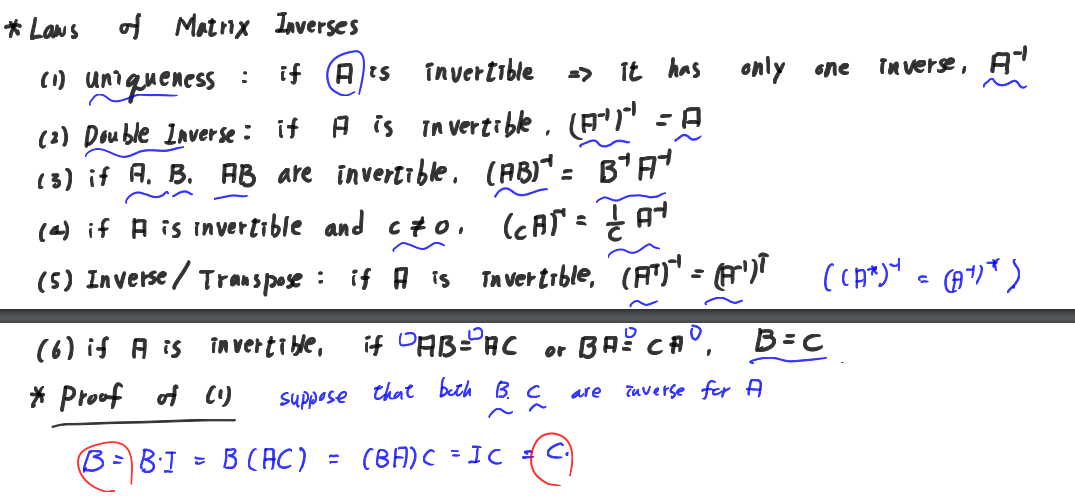 * Laws of Matrix Inverses
(1) uniqueness : if A is invertible => it has only one inverse. A⁻¹
(2) Double Inverse : if A is invertible. (A⁻¹)⁻¹ = A
(3) if A. B. AB are invertible. (AB)⁻¹ = B⁻¹A⁻¹
(4) if A is invertible and c ≠ 0. (cA)⁻¹ = 1/c A⁻¹
(5) Inverse / Transpose : if A is invertible. (Aᵀ)⁻¹ = (A⁻¹)ᵀ ((A*)⁻¹ = (A⁻¹)*)
(6) if A is invertible. if AB = AC or BA = CA. B = C
* Proof of (1) suppose that both B. C are inverse for A
B = B·I = B(AC) = (BA)C = IC = C.